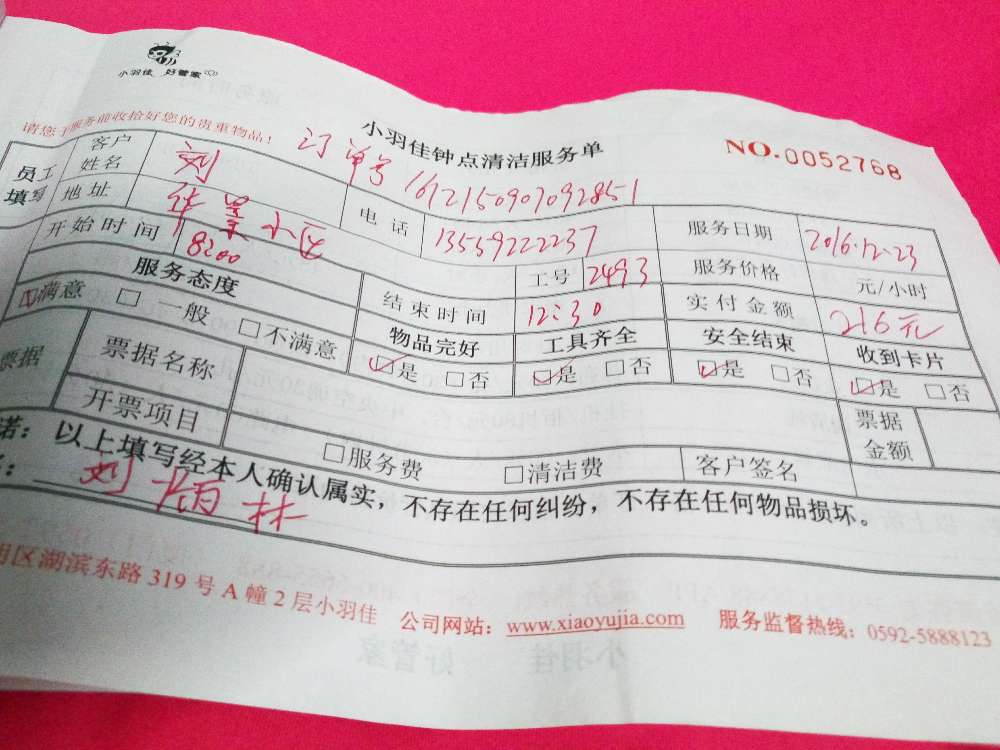 小羽佳 好管家
小羽佳钟点清洁服务单
NO.0052768
请您于服务前收拾好您的贵重物品！
订单号 1612150907092851
员工填写
客户姓名 刘
电话 13559222237
服务日期 2016.12.23
地址 华景小区
工号 2493
服务价格 元/小时
开始时间 8:00
结束时间 12:30
实付金额 216元
服务态度 物品完好 工具齐全 安全结束 收到卡片
满意 一般 不满意 是 否 是 否 是 否 是 否
票据 票据名称 票据金额
开票项目 服务费 清洁费 客户签名
诺：以上填写经本人确认属实，不存在任何纠纷，不存在任何物品损坏。
区湖滨东路319号A幢2层小羽佳 公司网站：www.xiaoyujia.com 服务监督热线：0592-5888123